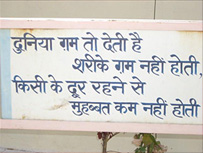 दुनिया ग़म तो देती है
शरीके ग़म नहीं होती,
किसी के दूर रहने से
मुहब्बत कम नहीं होती